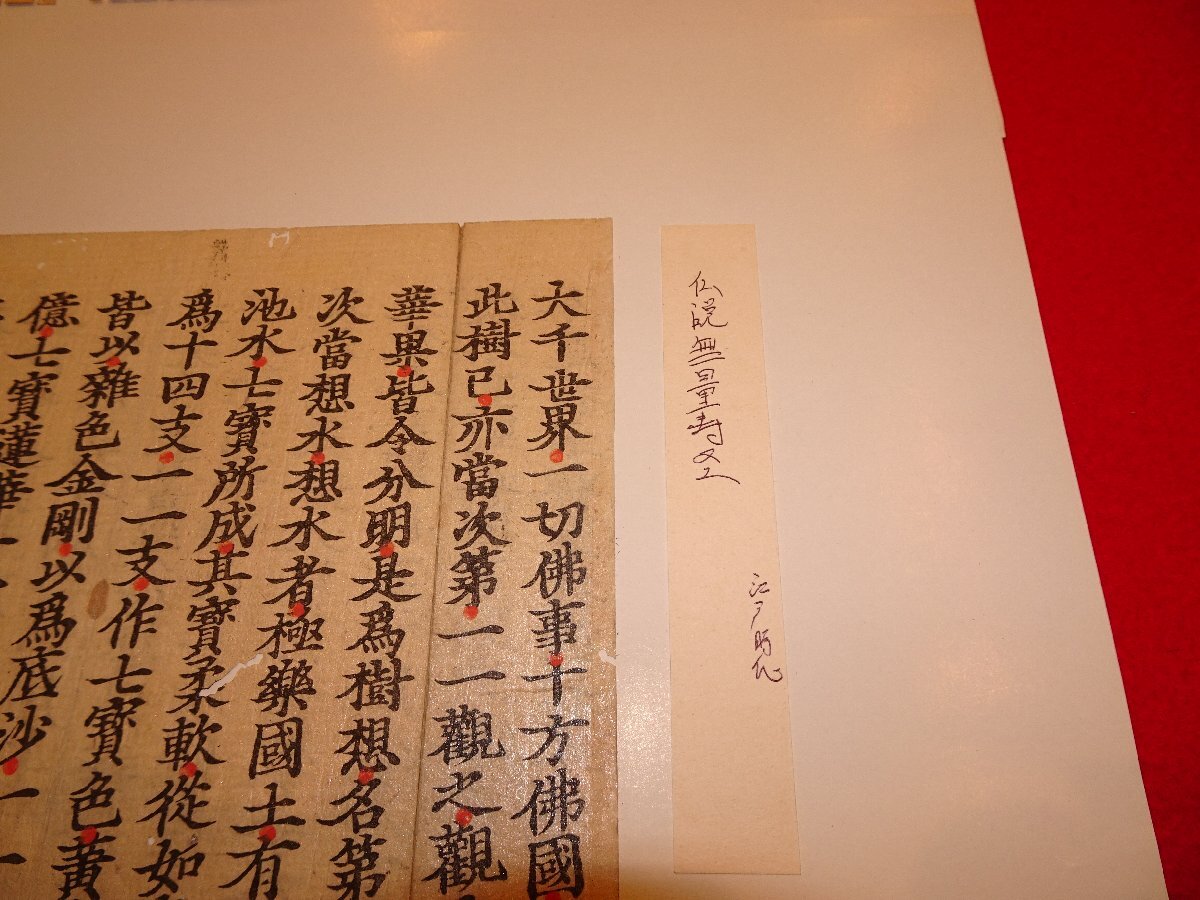 仏説無量寿圣
江戸時代
大千世界一切佛事十方佛國
此樹已亦當次第一一觀之觀
華果皆令分明是爲樹想名第
次當想水想水者極樂國土有
池水七寶所成其寶柔軟從如
爲十四支一一支作七寶色黃
皆以雜色金剛以爲底沙一一
億七寶蓮華一